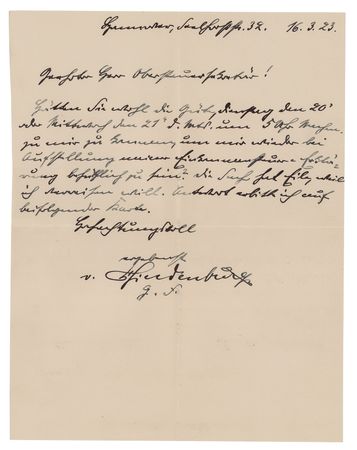 Hannover, Seelhorststr. 32. 16.3.23.
Geehrter Herr Obersteuersekretär!
Hätten Sie wohl die Güte, Dienstag den 20t
oder Mittwoch den 21t d. Mts. um 5 Uhr Nachm.
zu mir zu kommen, um mir wieder bei
Aufstellung meiner Einkommensteuer=Erklä=
rung behilflich zu sein. Die Sache hat Eile, weil
ich verreisen will. Antwort erbitte ich auf
beifolgender Karte.
Hochachtungsvoll
ergebenst
v. Hindenburg
G. F.